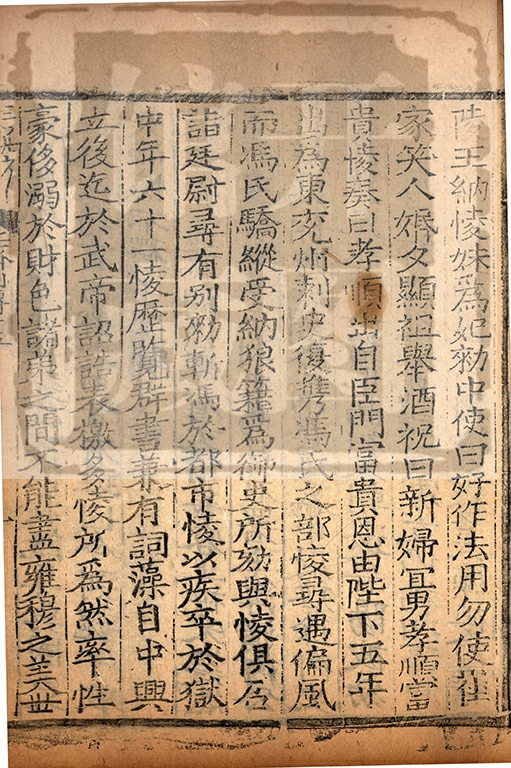 陵王納㥄妹爲妃勑中使曰好作法用勿使崔
家笑人婚夕顯祖舉酒祝曰新婦宜男孝順富
貴㥄奏曰孝順出自臣門富貴恩由陛下五年
出爲東兖州刺史復携馮氏之部㥄尋遇偏風
而馮氏驕縱受納狼籍爲御史所劾與㥄俱召
詣廷尉尋有别勑斬馮於都市㥄以疾卒於獄
中年六十一㥄歴覽群書兼有詞藻自中興
立後迄於武帝詔誥表檄多㥄所爲然率性
豪侈溺於財色諸弟之間不能盡雍穆之美世